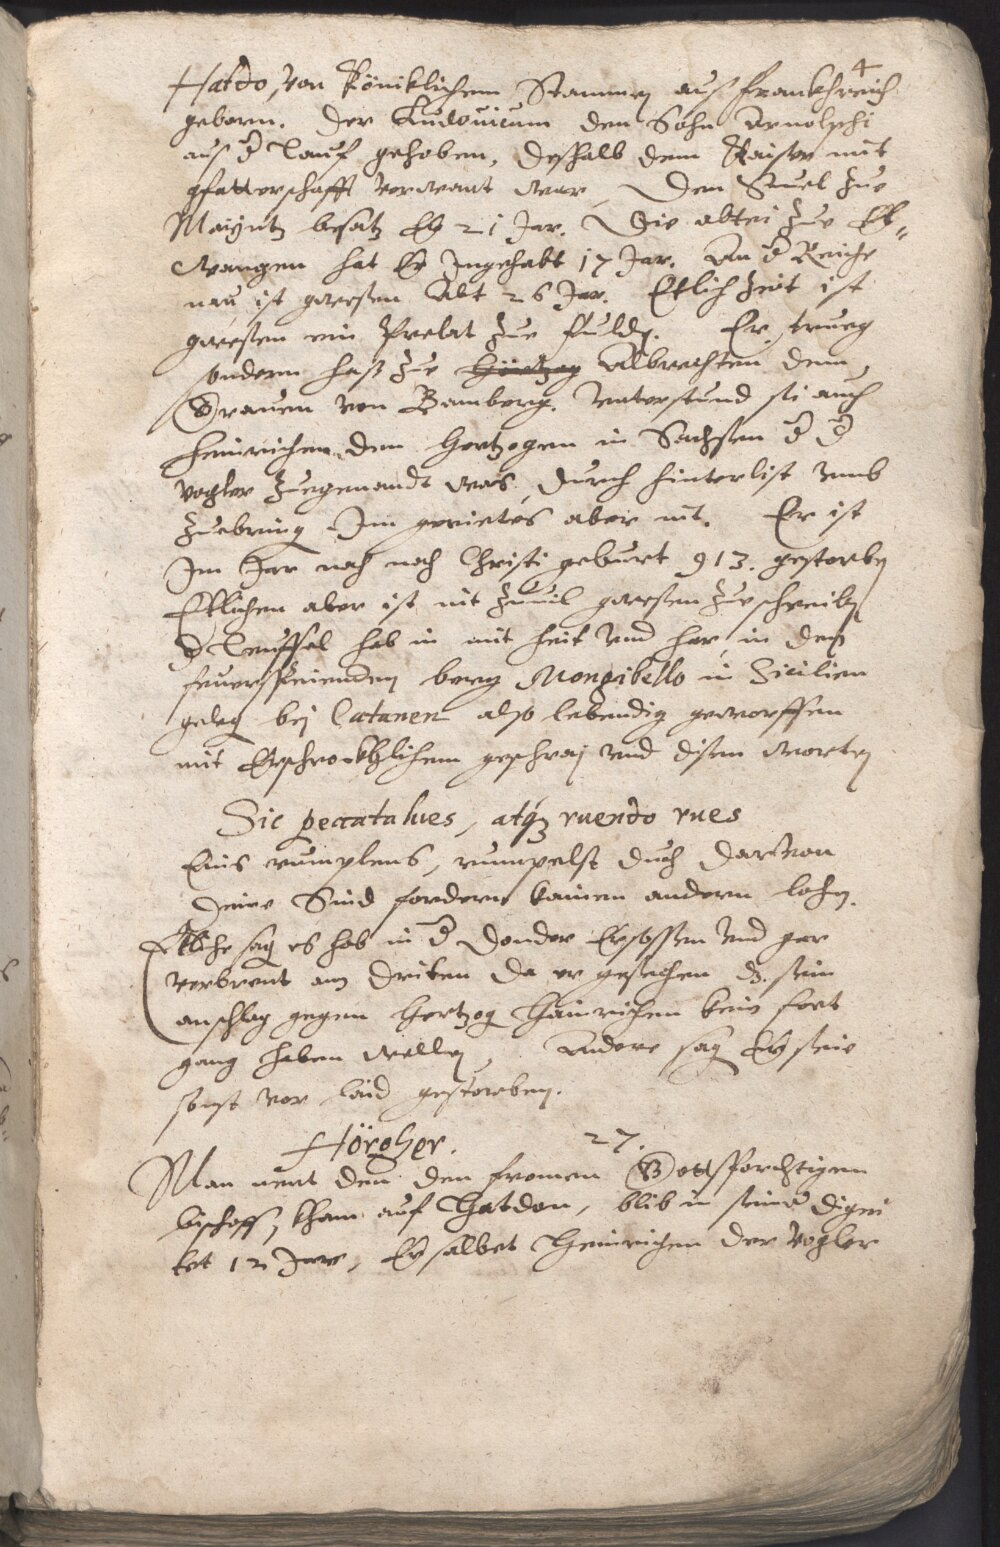 4
Hatdo, von Königklichem Stammen aus Franckhreich
geborn. Der Ludouicum den Sohn Arnolphi
aus d Tauf gehoben, deshalb dem Kaiser mit
gfatterschafft verwant war. Den Stuel zue
Mäyntz besatz Er 21 Jar. Die abtei zue El„
wangen hat Er Ingehabt 17 Jar. An d Reiche
nau ist gwesen Abt 26 Jar. Etlich Zeit ist
gwesen ein Prelat zue Fuldt. Er trueg
sondern hass zue Hörtzog Albrechten dem
Grauen von Bamberg. Vnterstund sie auch
Heinrichen den Hertzogen in Sachssen d d
Vogler zuegenandt was, durch hinterlist vmb
zuebring. Im gerietes aber nit. Er ist
Im Jar nach nach Christi geburt 913. gestorben
Etlichen aber ist nit zuuil gwesen zueschreiben
d Teuffel hab in mit heut vnd har in den
feuerspeienden berg Mongibello in Sicilien
geleg bej Catanen also lebendig geworffen
mit Erschrockhlichem geschraj vnd disen worten
Sic peccata lues, atq ruendo rues
Eins rumplens, rumpelst duch daruon
Deine Sünd fordern keinen andern lohn.
Etliche sag es hab in d Donder Erschossen vnd gar
verbrent am dritten da er gesechen dz sein
anschlag gegen Hertzog Hainrichen kein fort
gang haben wellen. Andere sag Er seie
sonst vor laid gestorben.
Hörgher. 27.
Man nent den den fromen Gottsforchtigen
bischoff, kham auf Hatdon, blib in seiner digni
tet 12 Jare, Er salbet Heinrichen der Vogler